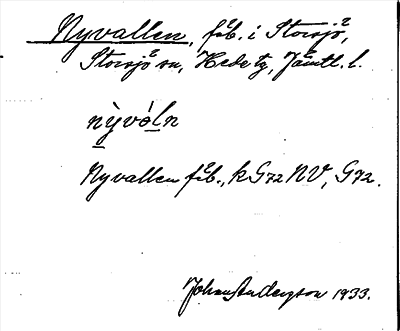 Nyvallen, fäb. i Storsjö,
Storsjö sn, Hede tg, Jämtl. l.
nỳvóln
Nyvallen fäb., k G72 NV, G72.
Johan Anderzson 1933.